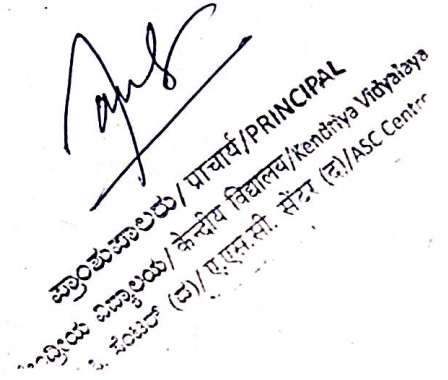 ಪ್ರಾಂಶುಪಾಲರು/ प्राचार्य/PRINCIPAL
ಕೇಂದ್ರೀಯ ವಿದ್ಯಾಲಯ/ केन्द्रीय विद्यालय/Kendriya Vidyalaya
ಸೆಂಟರ್ (ದ)/ ए.एस.सी. सेंटर (द)/ASC Centre